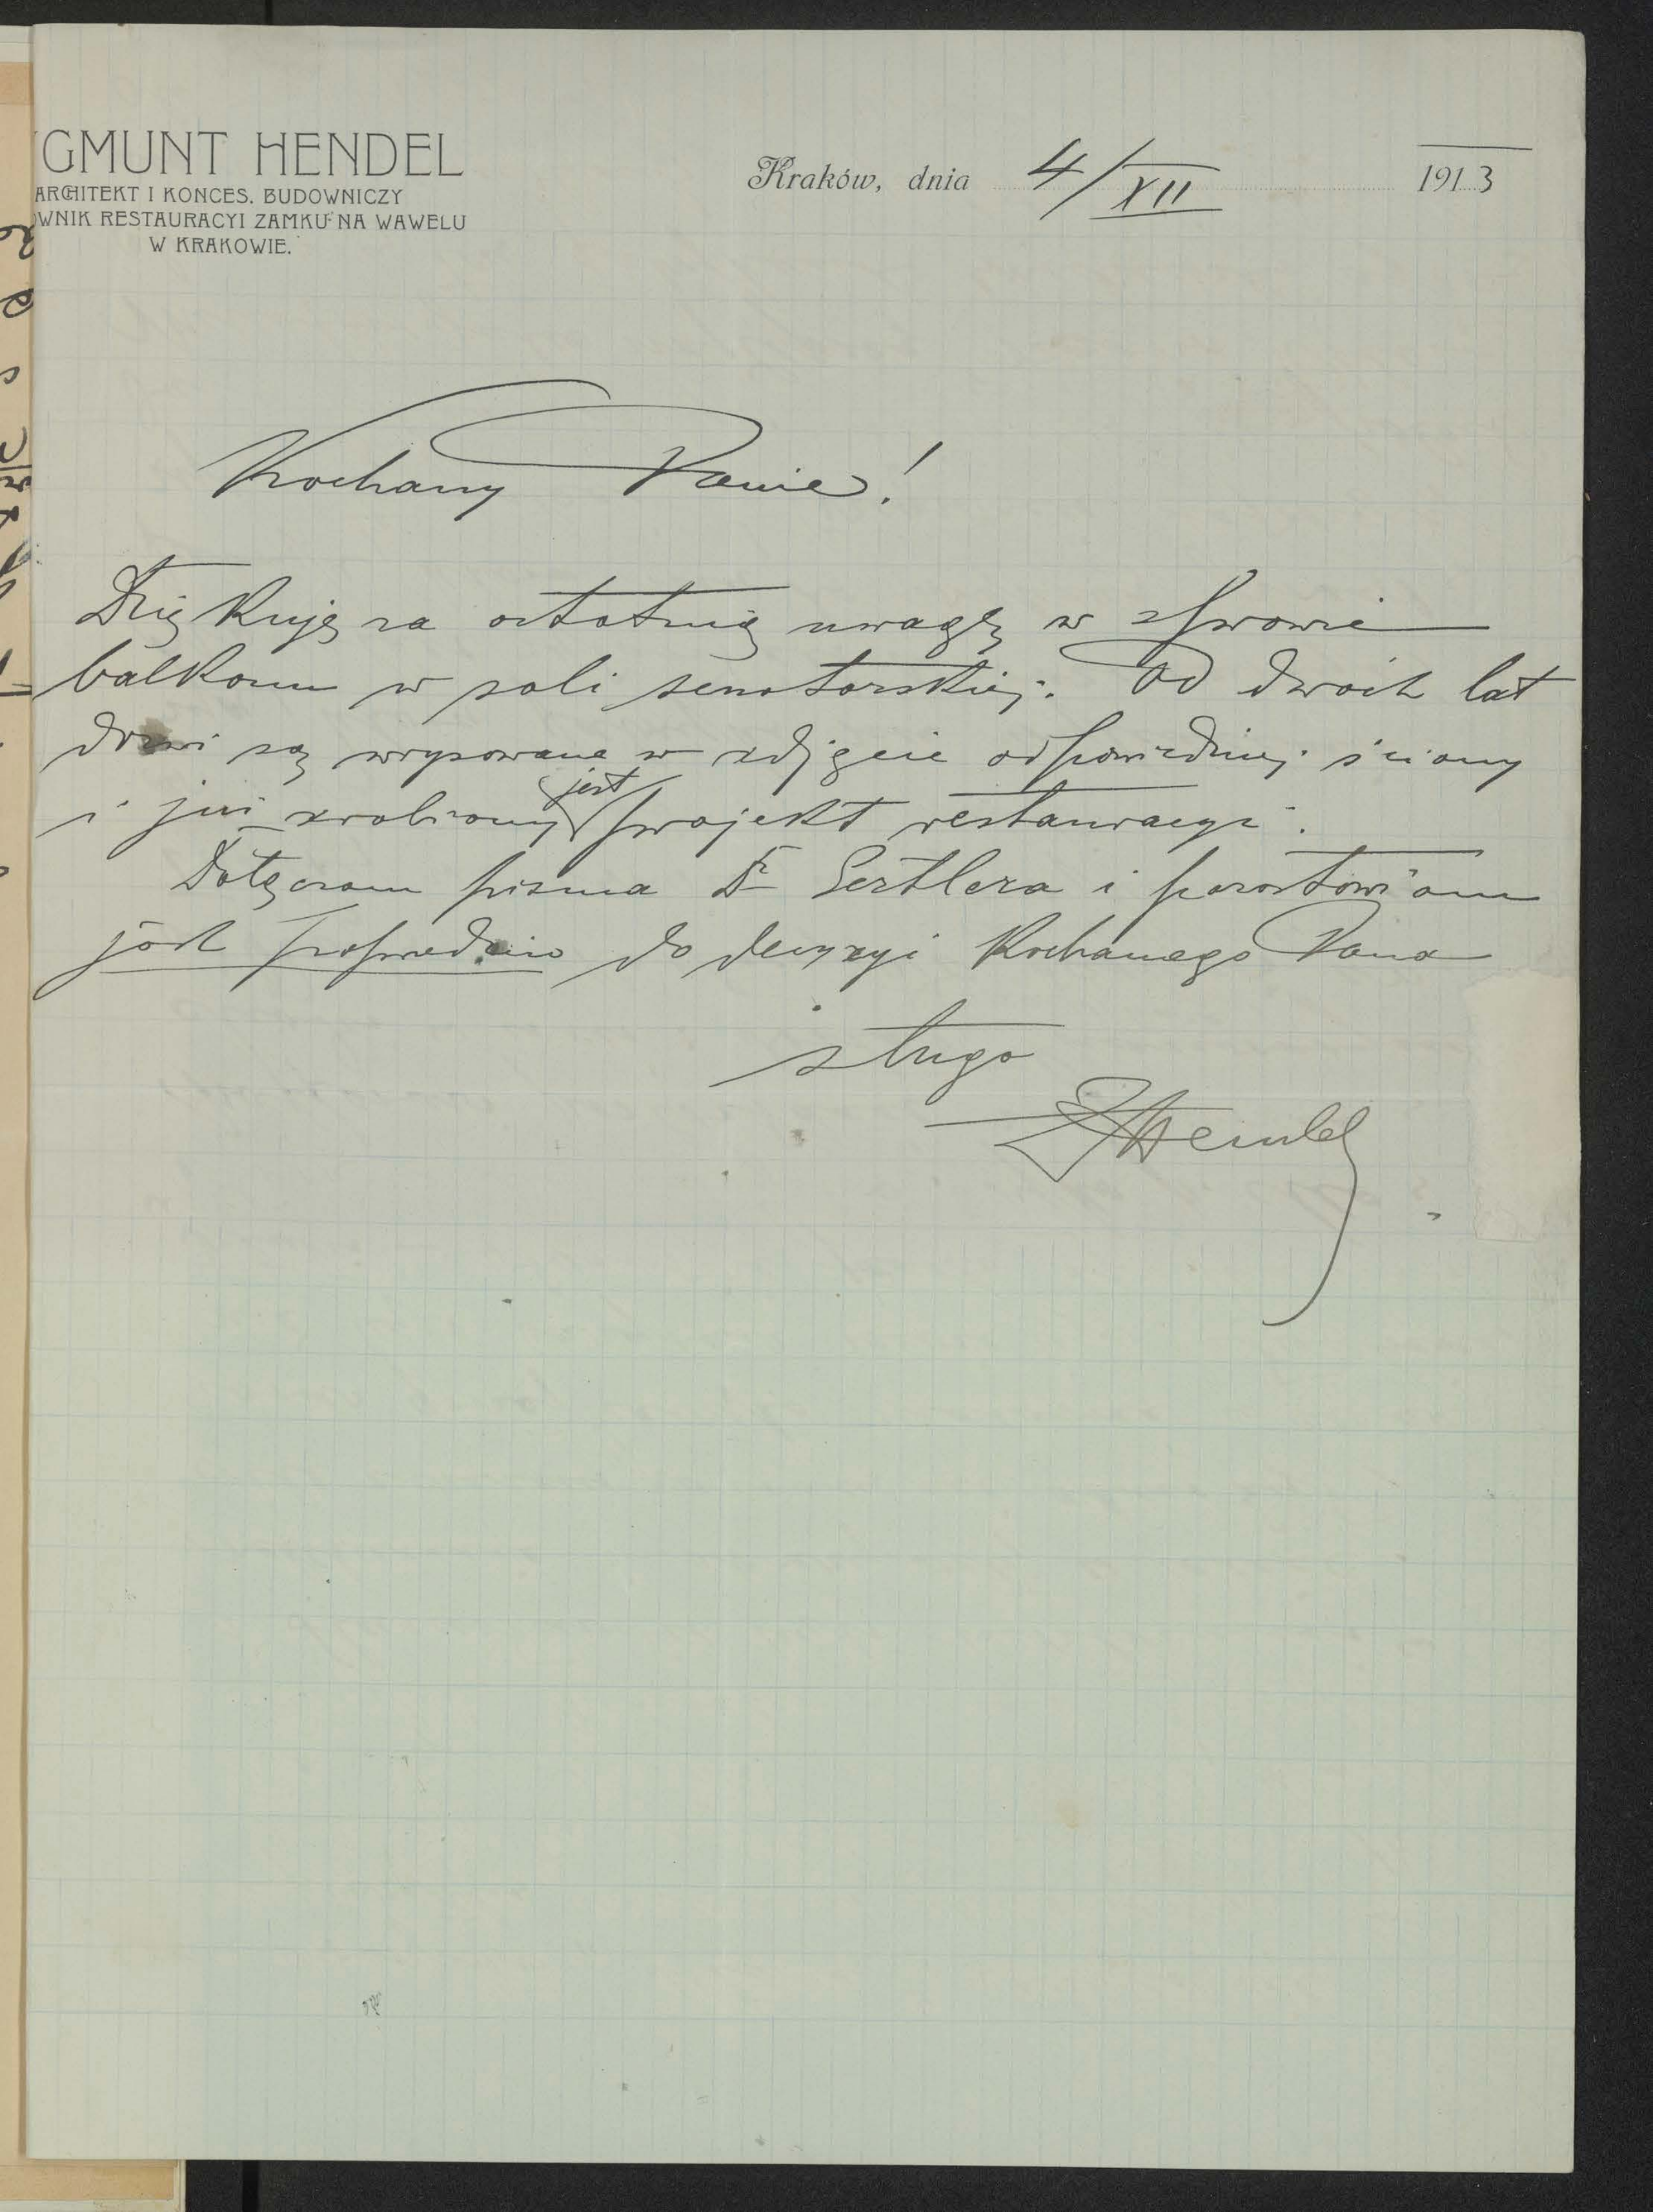 YGMUNT HENDEL
ARCHITEKT I KONCES. BUDOWNICZY
OWNIK RESTAURACYI ZAMKU NA WAWELU
W KRAKOWIE.
Kraków, dnia 4/XII 1913
Kochany Panie!
Dziękuję za ostatnią uwagę w sprawie
balkonu w sali senatorskiej. Od dwóch lat
drzwi są wrysowane w zdjęcie odpowiedniej ściany
i już zrobiony jest projekt restauracyi.
Dołączam pisma Dr i pozostawiam
jak poprzednio do decyzyi Kochanego Pana
sługa
ZHendel